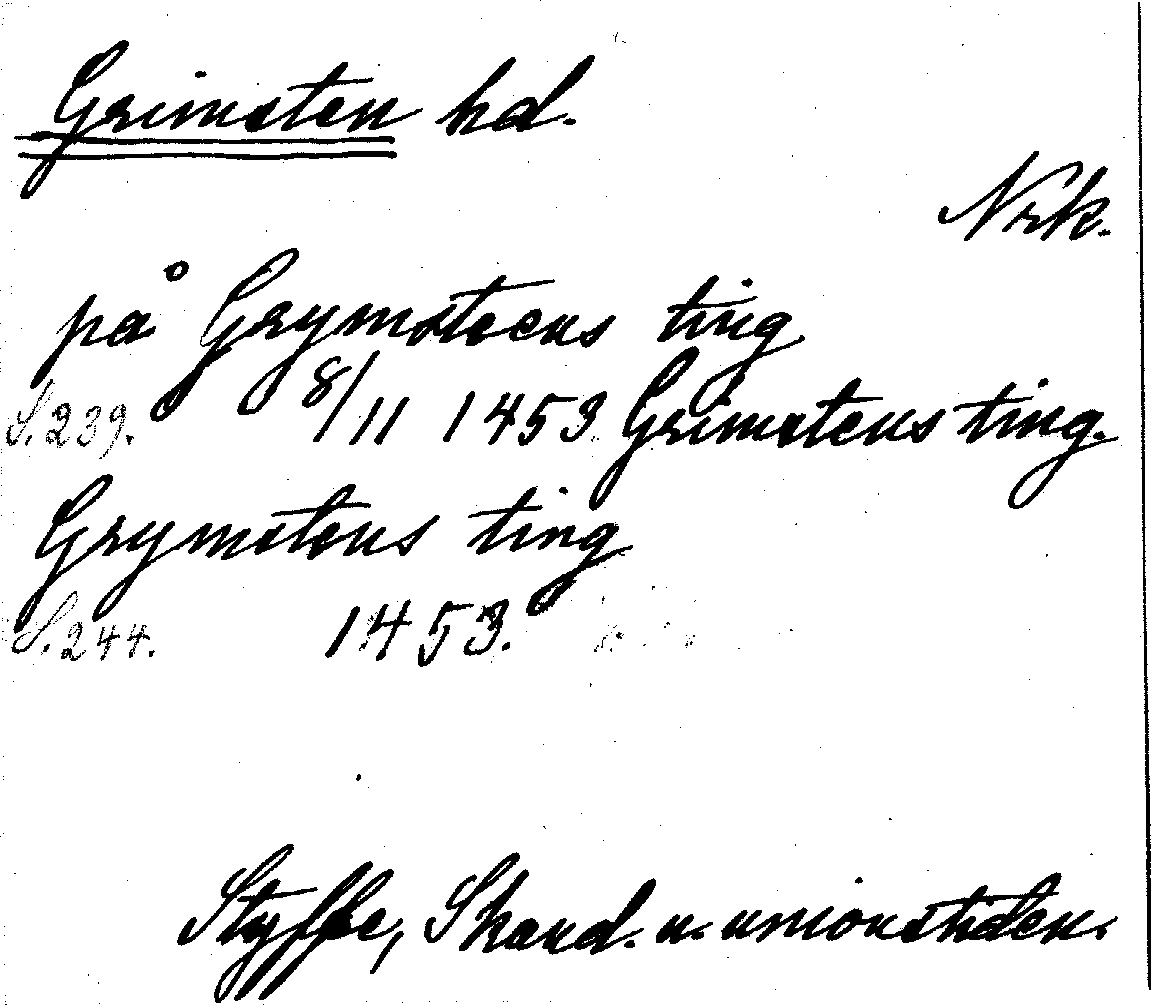 Grimsten hd.
Nrk.
på Grymsteens ting
S. 239. 8/11 1453. Grimstens ting.
Grymstens ting
S. 244. 1453.
Styffe, Skand. u. unionstiden.